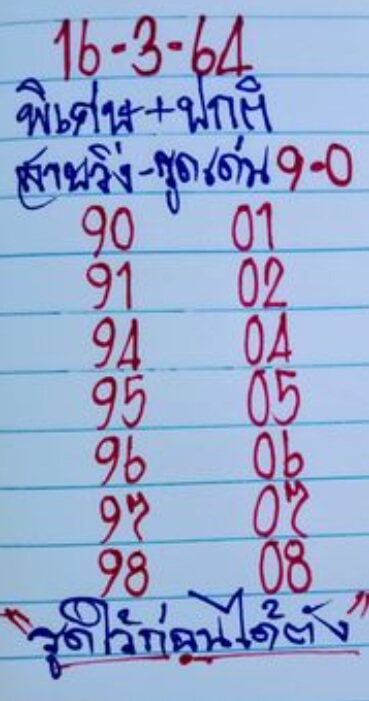 16-3-64
พิเศษ+ปกติ
สายวิ่ง-รูดเด่น 9-0
90 01
91 02
94 04
95 05
96 06
97 07
98 08
"รูดไว้ก่อนได้ตัง"